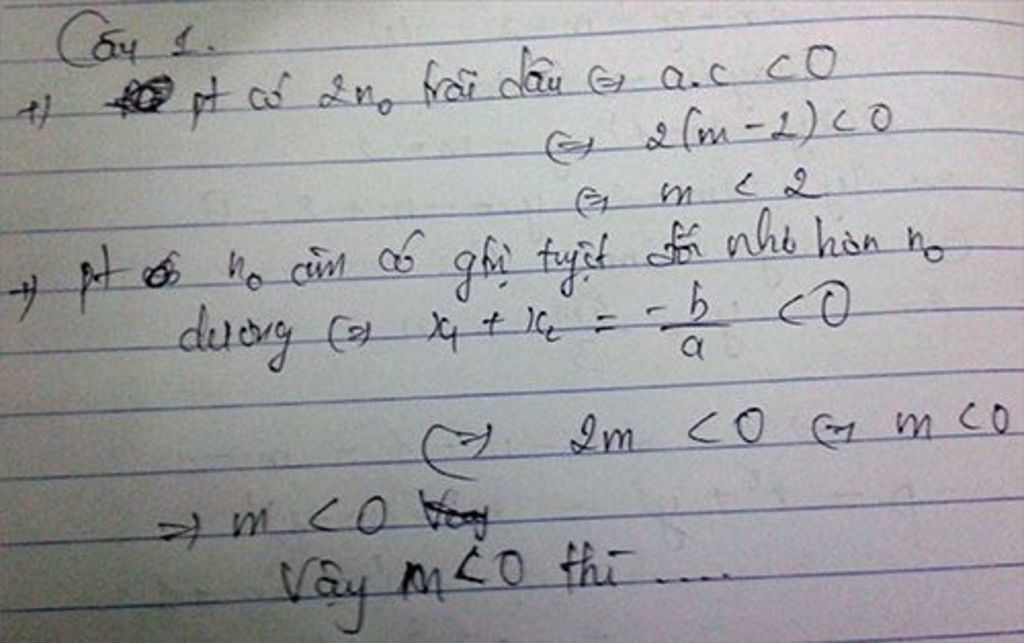 Câu 1.
+) pt có 2 n₀ trái dấu ⇔ a.c < 0
⇔ 2(m - 2) < 0
⇔ m < 2
+) pt có n₀ âm có ghị tuyệt đối nhỏ hơn n₀
dương ⇔ x₁ + x₂ = -b/a < 0
⇔ 2m < 0 ⇔ m < 0
⇒ m < 0
Vậy m < 0 thì ....